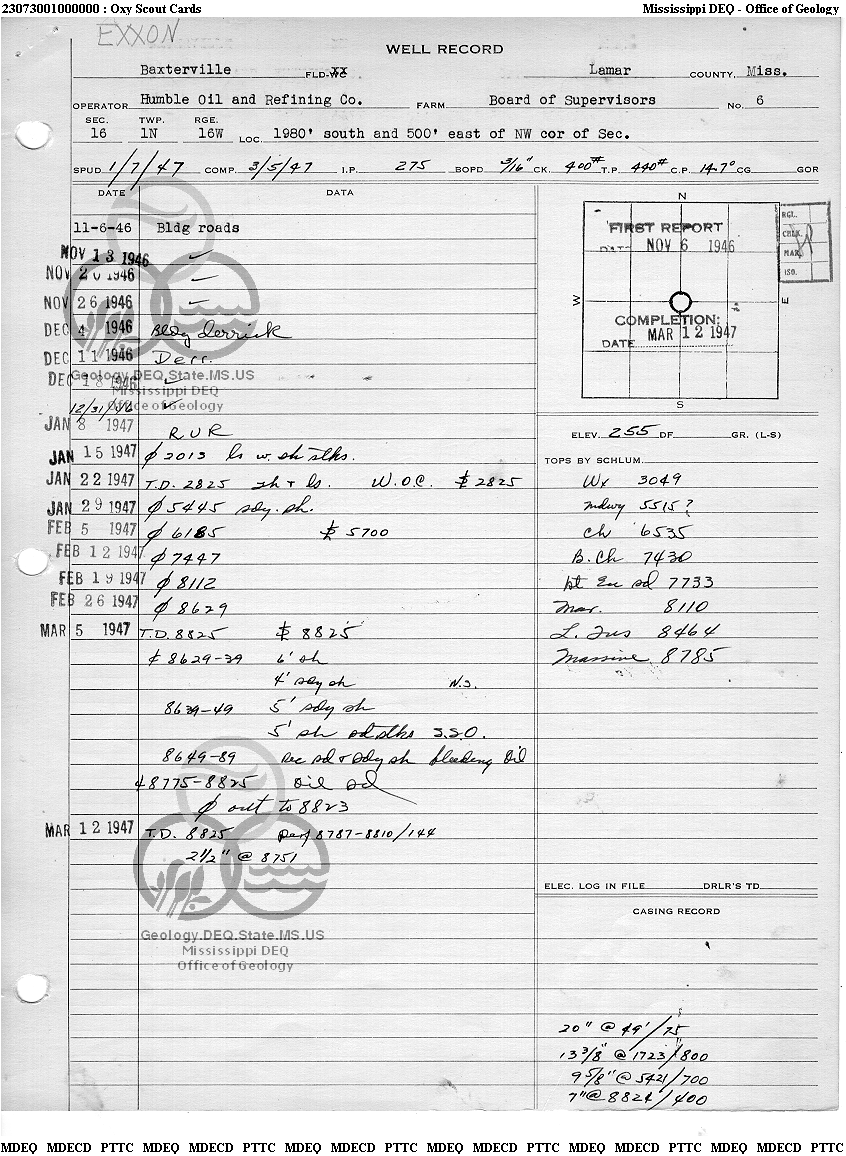 23073001000000 : Oxy Scout Cards Mississippi DEQ - Office of Geology
EXXON
WELL RECORD
Baxterville FLD-WC XX Lamar COUNTY, Miss.
OPERATOR Humble Oil and Refining Co. FARM Board of Supervisors No. 6
SEC. TWP. RGE.
16 1N 16W LOC. 1980' south and 500' east of NW cor of Sec.
SPUD 1/7/47 COMP. 3/5/47 I.P. 275 BOPD 3/16" CK. 400# T.P. 440# C.P. 14.7° CG GOR
DATE DATA
11-6-46 Bldg roads
NOV 13 1946 ✓
NOV 20 1946 ✓
NOV 26 1946 ✓
DEC 4 1946 Bldg derrick
DEC 11 1946 Derr.
DEC 18 1946 ✓
12/31/46 ✓
JAN 8 1947 RUR
JAN 15 1947 ϕ 2013 ls w. sh stks.
JAN 22 1947 T.D. 2825 sh + ls. W.O.C. $ 2825
JAN 29 1947 ϕ 5445 sdy. sh.
FEB 5 1947 ϕ 6185 $ 5700
FEB 12 1947 ϕ 7447
FEB 19 1947 ϕ 8112
FEB 26 1947 ϕ 8629
MAR 5 1947 T.D. 8825 $ 8825
¢ 8629-39 6' sh
4' sdy sh N.S.
8639-49 5' sdy sh
5' sh sd stks S.S.O.
8649-89 Rec sd + sdy sh bleeding Oil
¢ 8775-8825 Oil sd
ϕ out to 8823
MAR 12 1947 T.D. 8825 perf 8787-8810/144
2½" @ 8751
Geology.DEQ.State.MS.US
Mississippi DEQ
Office of Geology
Geology.DEQ.State.MS.US
Mississippi DEQ
Office of Geology
N
RGL.
CHLK.
MAR.
ISO.
FIRST REPORT
DATE NOV 6 1946
W E
COMPLETION:
DATE MAR 12 1947
S
ELEV. 255 DF GR. (L-S)
TOPS BY SCHLUM.
Wx 3049
mdwy 5515?
Ch 6535
B. Ch 7430
Eu sd 7733
Mar. 8110
L. Tus 8464
Massive 8785
ELEC. LOG IN FILE DRLR'S TD
CASING RECORD
20" @ 49'/75
13 3/8" @ 1723/800
9 5/8" @ 5421/700
7" @ 8824/400
MDEQ MDECD PTTC MDEQ MDECD PTTC MDEQ MDECD PTTC MDEQ MDECD PTTC MDEQ MDECD PTTC MDEQ MDECD PTTC